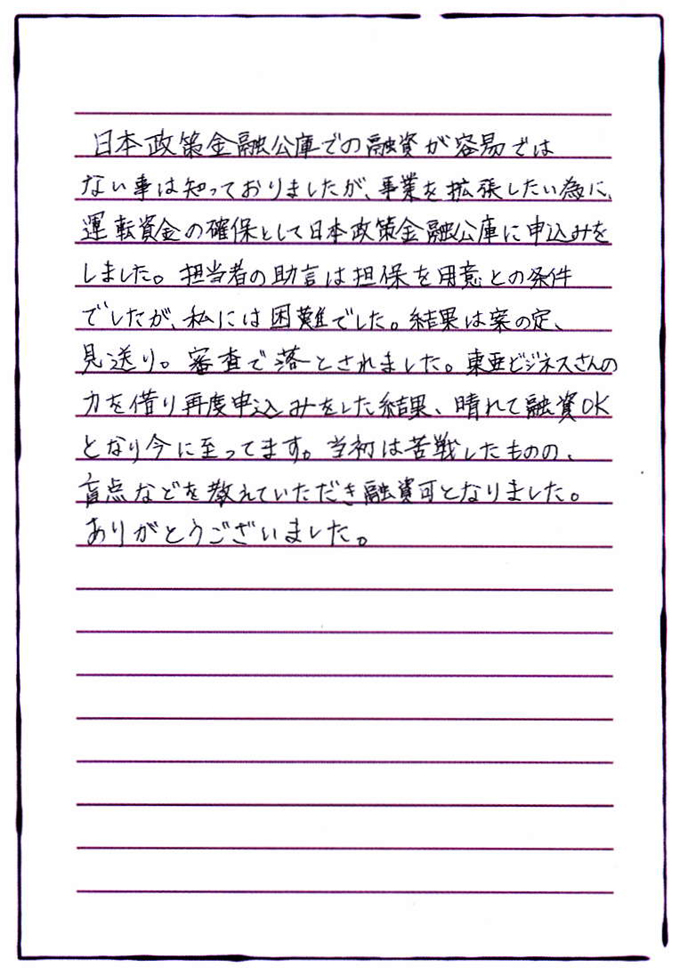 日本政策金融公庫での融資が容易では
ない事は知っておりましたが、事業を拡張したい為に、
運転資金の確保として日本政策金融公庫に申込みを
しました。担当者の助言は担保を用意との条件
でしたが、私には困難でした。結果は案の定、
見送り。審査で落とされました。東亜ビジネスさんの
力を借り再度申込みをした結果、晴れて融資OK
となり今に至ってます。当初は苦戦したものの、
盲点などを教えていただき融資可となりました。
ありがとうございました。